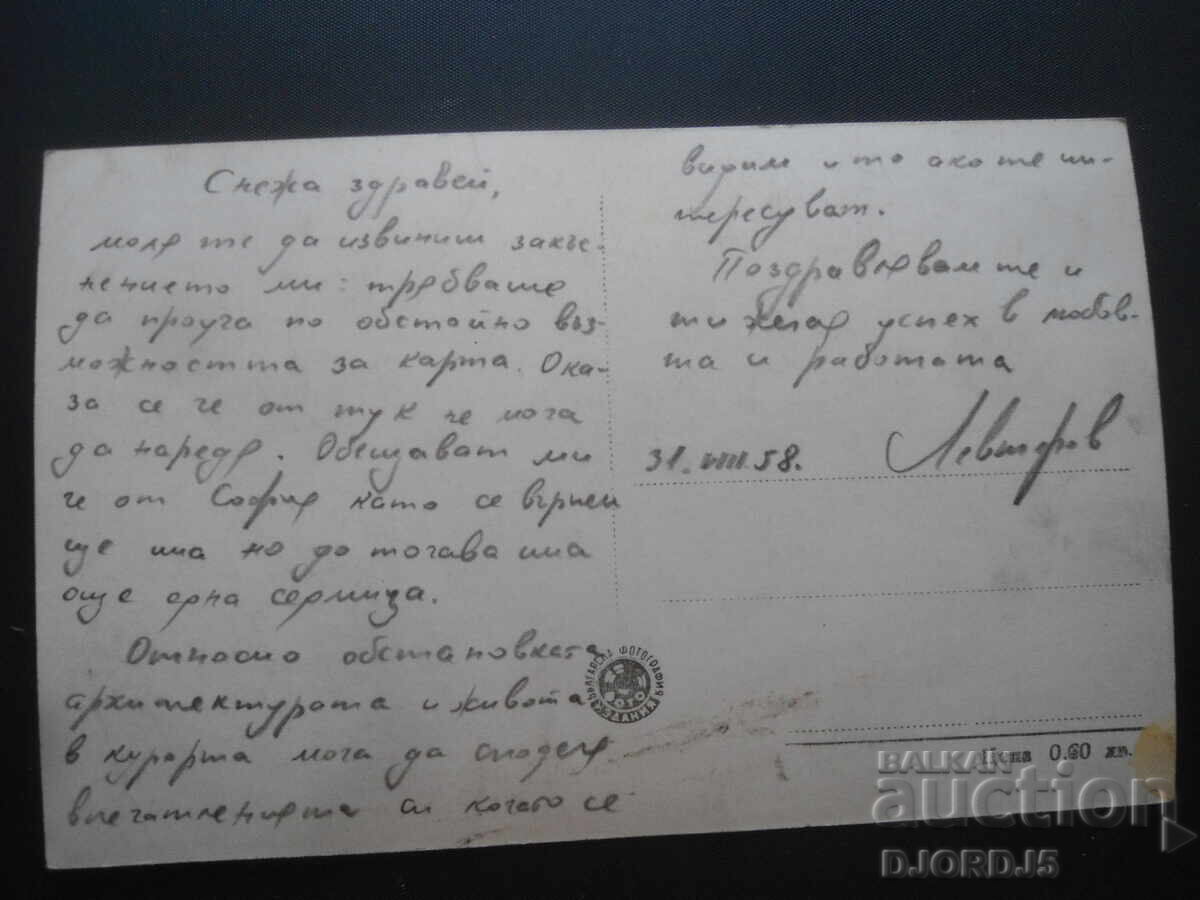 Снежа здравей,
моля те да извиниш закъс-
нението ми: трябваше
да проуча по обстойно въз-
можността за карта. Ока-
за се че от тук не мога
да наредя. Обещават ми
че от София като се върнеш
ще има но до тогава има
още една седмица.
Относно обстановката
архитектурата и живота
в курорта мога да споделя
впечатленията си когато се
видим и то ако те ин-
тересуват.
Поздравявам те и
ти желая успех в любов-
та и работата
31.VIII.58.
Левтеров
БЪЛГАРСКА ФОТОГРАФИЯ
ИЗДАНИЯ
Цена 0.60 лв.
BALKAN
auction
DJORDJ5